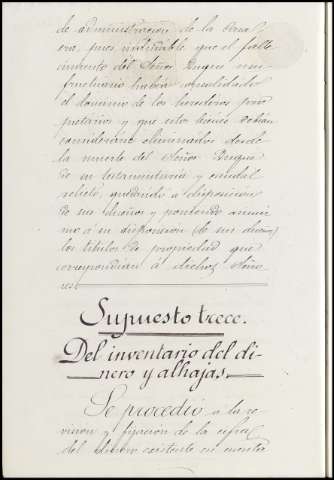 de administración de la
era, pues indudable que el falle
cimiento del Señor Duque usu-
fructuario había consolidado
el dominio de los herederos pro
pietarios y que estos bienes debían
considerarse eliminados desde
la muerte del Señor Duque
de su testamentaría y caudal
relicto, quedando á disposición
de sus dueños y poniendo asimis
mo á su disposición (de sus dueños)
los títulos de propiedad que
correspondían á dichos Seño-
res.
Supuesto trece.
Del inventario del di-
nero y alhajas.
Se procedió a la re-
visión y fijación de la cifra
del dinero existente en cuenta